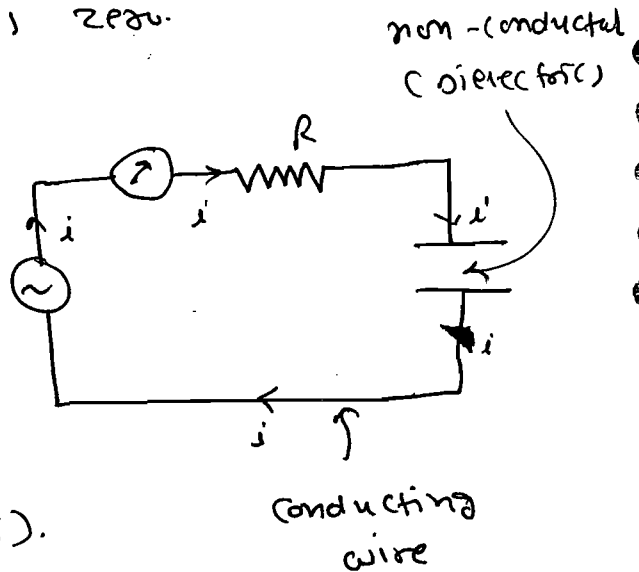 ) zero.
non-conductal
(Dielectoric)
R
i
i
i
i
i
conducting
wire
).